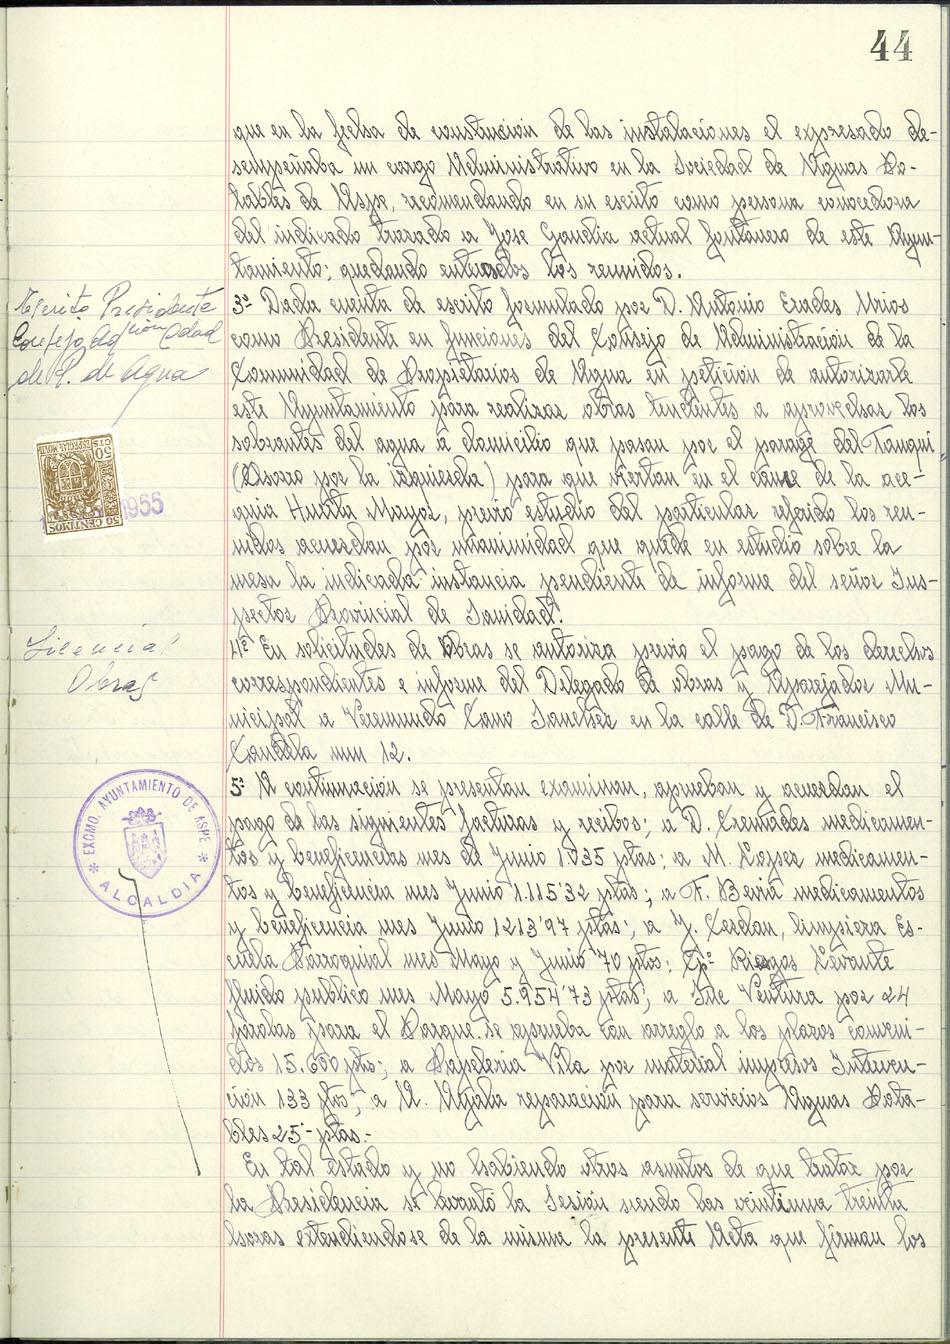 44
que en la fecha de constucion de las instalaciones el expresado de-
sempeñaba un cargo Administrativo en la Sociedad de Aguas Po-
tables de Aspe, recomendando en su escrito como persona conocedora
del indicado trazado a Jose Gandia actual fontanero de este Ayun-
tamiento; quedando enterados los reunidos.
Escrito Presidente
Consejo Adcion Cdad
de P. de Agua
3º Dada cuenta de escrito formulado por D. Antonio Erades Mrios
como Presidente en funciones del Consejo de Administración de la
Comunidad de Propietarios de Agua en petición de autorizarle
este Ayuntamiento para realizar obras tendentes a aprovechar los
sobrantes del agua a domicilio que pasan por el paraje del Tamaqui
(Chorro por la izquierda) para que viertan en el cauce de la ace-
quia Huerta Mayor, previo estudio del particular referido los reu-
nidos acuerdan por unanimidad que quede en estudio sobre la
mesa la indicada instancia pendiente de informe del señor Ins-
pector Provincial de Sanidad.
50 CTS
ESPECIAL MOVIL
50 CENTIMOS
1955
Licencias
Obras
4º En solicitudes de Obras se autoriza previo el pago de los derechos
correspondientes e informe del Delegado de obras y Aparejador Mu-
nicipal a Veremundo Cano Sanchez en la calle de D. Francisco
Candela num 12.
EXCMO. AYUNTAMIENTO DE ASPE
* ALCALDIA *
5º A continuación se presentan examinan, aprueban y acuerdan el
pago de las siguientes facturas y recibos; a D. Cremades medicamen-
tos y beneficencias mes de Junio 1.035 ptas; a M. Lopez medicamen-
tos y beneficencia mes Junio 1.115'32 ptas; a F. Beviá medicamentos
y beneficencia mes Junio 1213'97 ptas; a J. Cerdan, limpieza Es-
cuela Parroquial mes Mayo y Junio 70 ptas; Cª Riegos Levante
fluido publico mes Mayo 5.954'73 ptas; a Ventura por 24
farolas para el Parque se aprueba con arreglo a los plazos conveni-
dos 15.600 ptas; a Papeleria Vila por material impresos Interven-
ción 133 ptas; a A. Ayala reparación para servicios Aguas Pota-
bles 25- ptas.-
En tal estado y no habiendo otros asuntos de que tratar por
la Presidencia se levantó la Sesión siendo las veintiuna treinta
horas extendiendose de la misma la presente Acta que firman los